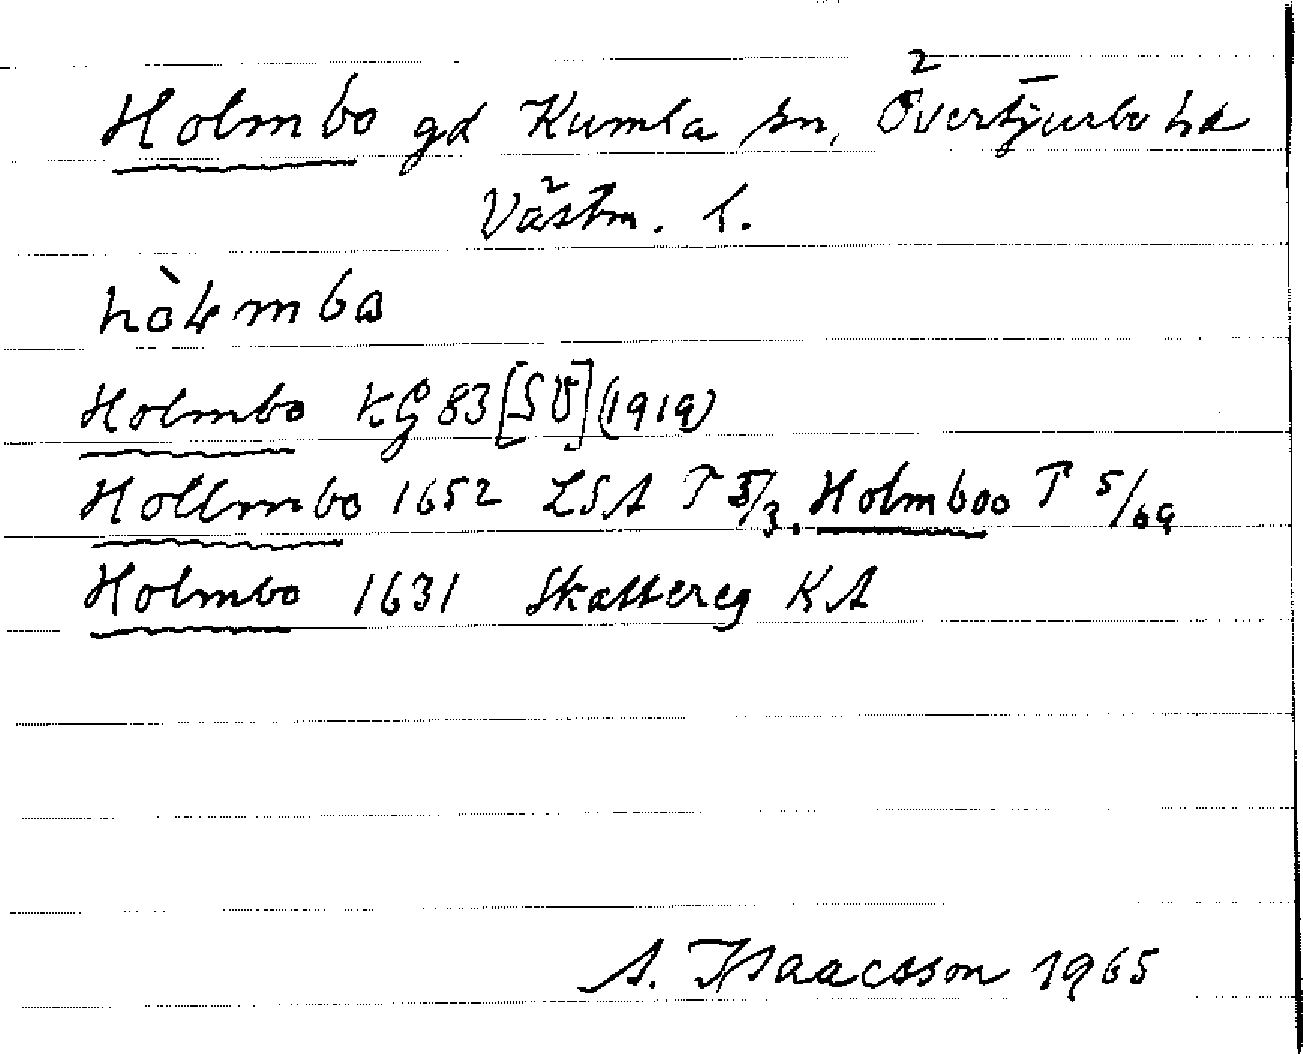 Holmbo gd Kumla sn, Övertjurbo hd
Västm. l.
Holmbo KG 83 [SV] (1919)
Hollmbo 1652 LSA T 5/3. Holmboo T 5/69
Holmbo 1631 Skattereg KA
A. Isaacsson 1965